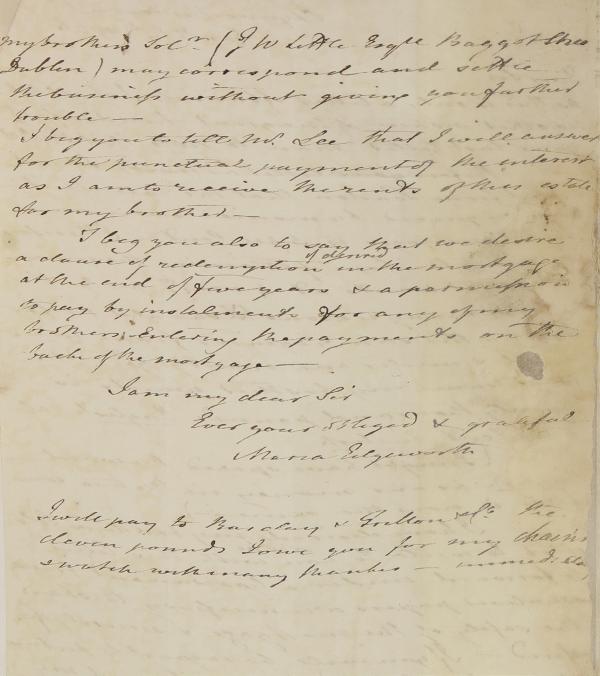 my brothers Solr. (J W Little Esqre Baggot Stree
Dublin) may correspond and settle
the business without giving you further
trouble —
I beg you to tell Mr. Lee that I will answer
for the punctual payment of the interest
as I am to receive the rents of this estate
for my brother —
I beg you also to say that we desire
if desired
a clause of redemption in the mortgage
at the end of five years & a permission
to pay by instalments for any of my
brothers Entering the payments on the
back of the mortgage —
I am my dear Sir
Ever your obliged & grateful
Maria Edgeworth
I will pay to Barclay & Fritton & Co the
eleven pounds I owe you for my chain
& watch with many thanks — immediately